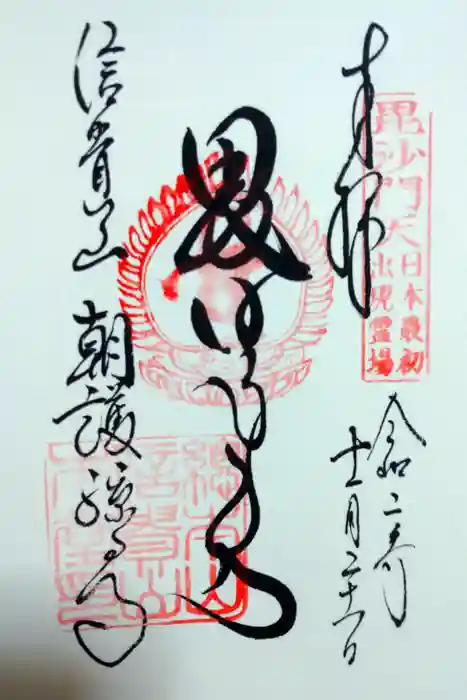 奉拝
毘沙門天
日本最初
出現霊場
令和二年
十一月二十一日
毘沙門天
信貴山 朝護孫子寺
総本山
信貴山